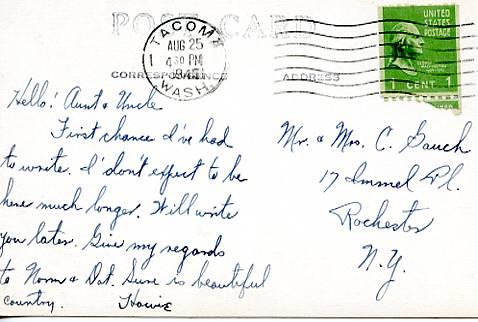 POST CARD
TACOMA
AUG 25
1 4 30 PM
WASH.
CORRESPONDENCE
ADDRESS
UNITED
STATES
POSTAGE
1 CENT 1
Hello! Aunt & Uncle
First chance I've had
to write. I don't expect to be
here much longer. Will write
you later. Give my regards
to Norm & Dot. Sure is beautiful
country. Howie
Mr. & Mrs. C. Gauch
17 Immel Pl.
Rochester
N.Y.